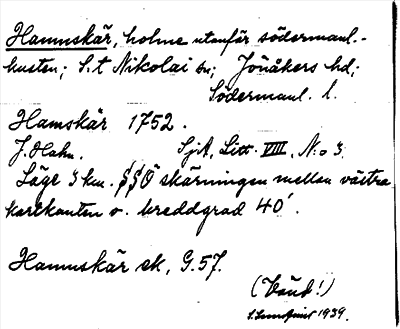 Hamnskär, holme utanför södermanl.-
kusten; S:t Nikolai sn; Jönåkers hd;
Södermanl. l.
Hamskär 1752.
J. Hahn. SjA, Litt. VIII, N:o 3.
Läge 3 km. SSÖ skärningen mellan västra
kartkanten o. breddgrad 40'.
Hamnskär sk, G.57.
(Vänd!)
1939.